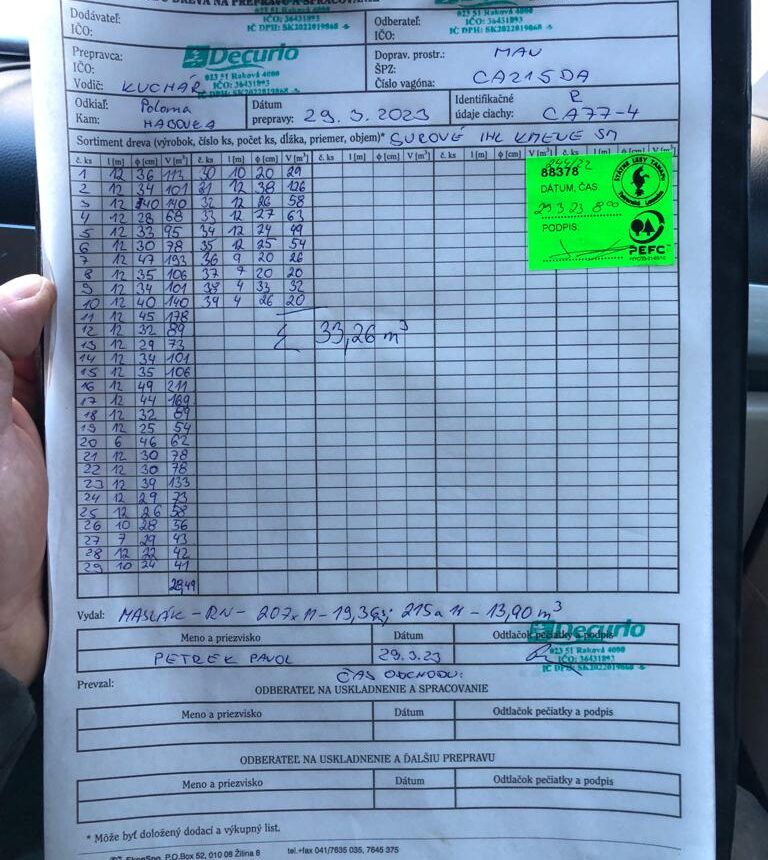 DREVA NA PREPRAVU A SPRACOVANIE
Dodávateľ:
IČO:
023 51 Raková 4000
IČO: 36431893
IČ DPH: SK2022019868
Odberateľ:
IČO:
023 51 Raková 4000
IČO: 36431893
IČ DPH: SK2022019868
Prepravca:
IČO:
Vodič: KUCHÁR
Decurio
023 51 Raková 4000
IČO: 36431893
IČ DPH: SK2022019868
Doprav. prostr.: MAN
ŠPZ:
Číslo vagóna: CA215DA
Odkiaľ: Poloma
Kam: HABOVKA
Dátum
prepravy: 29.3.2023
Identifikačné
údaje ciachy: R
CA77-4
Sortiment dreva (výrobok, číslo ks, počet ks, dĺžka, priemer, objem)* SUROVÉ IHL KMENE SM
č. ks l [m] ϕ [cm] V [m³] č. ks l [m] ϕ [cm] V [m³] č. ks l [m] ϕ [cm] V [m³] č. ks l [m] ϕ [cm] V [m³]
1 12 36 113 30 10 20 29
2 12 34 101 31 12 38 126
3 12 40 140 32 12 26 58
4 12 28 68 33 12 27 63
5 12 33 95 34 12 24 49
6 12 30 78 35 12 25 54
7 12 47 193 36 9 20 26
8 12 35 106 37 7 20 20
9 12 34 101 38 4 33 32
10 12 40 140 39 4 26 20
11 12 45 178
12 12 32 89
13 12 29 73
14 12 34 101
15 12 35 106
16 12 49 211
17 12 44 169
18 12 32 89
19 12 25 54
20 6 46 62
21 12 30 78
22 12 30 78
23 12 39 133
24 12 29 73
25 12 26 58
26 10 28 56
27 7 29 43
28 12 22 42
29 10 24 41
2849
Σ 33,26 m³
244/22
88378
DÁTUM, ČAS:
29 3 23 8⁰⁰
PODPIS:
ŠTÁTNE LESY TANAPU
PEFC
Vydal: MASLIAK - RN - 207x11 - 19,36; 215a11 - 13,90 m³
Meno a priezvisko Dátum Odtlačok pečiatky a podpis
PETREK PAVOL 29.3.23
Decurio
023 51 Raková 4000
IČO: 36431893
IČ DPH: SK2022019868
Prevzal:
ČAS ODCHODU:
ODBERATEĽ NA USKLADNENIE A SPRACOVANIE
Meno a priezvisko Dátum Odtlačok pečiatky a podpis
ODBERATEĽ NA USKLADNENIE A ĎALŠIU PREPRAVU
Meno a priezvisko Dátum Odtlačok pečiatky a podpis
* Môže byť doložený dodací a výkupný list.
P.O.Box 52, 010 08 Žilina 8 tel.+fax 041/7635 035, 7645 375